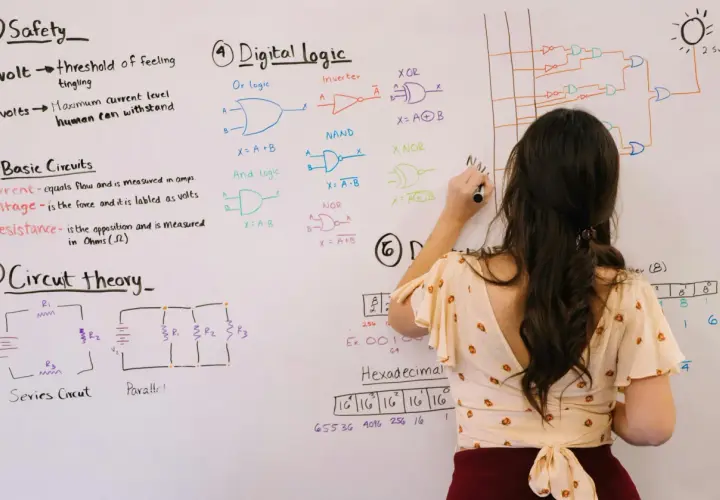 Safety
volt → threshold of feeling
tingling
volts → Maximum current level
human can withstand
Basic Circuits
rrent - equals flow and is measured in amps
ltage - is the force and it is labled as volts
esistance - is the opposition and is measured
in Ohms (Ω)
Circuit theory
R₁
R₂
R₃
Series Circuit
V₁
R₁
R₂
R₃
Parallel
④ Digital logic
Or logic
A
B
X
X = A + B
Inverter
A
A̅
XOR
A
B
X
X = A ⊕ B
And logic
A
B
X
X = A · B
NAND
A
B
X
X = \overline{A · B}
NOR
A
B
X
X = \overline{A + B}
X NOR
X = \overline{A ⊕ B}
⑥ D
(8)
Ex. 0 0 1
64
Hexadecimal
16⁴ 16³ 16² 16¹ 16⁰
65536 4096 256 16 1